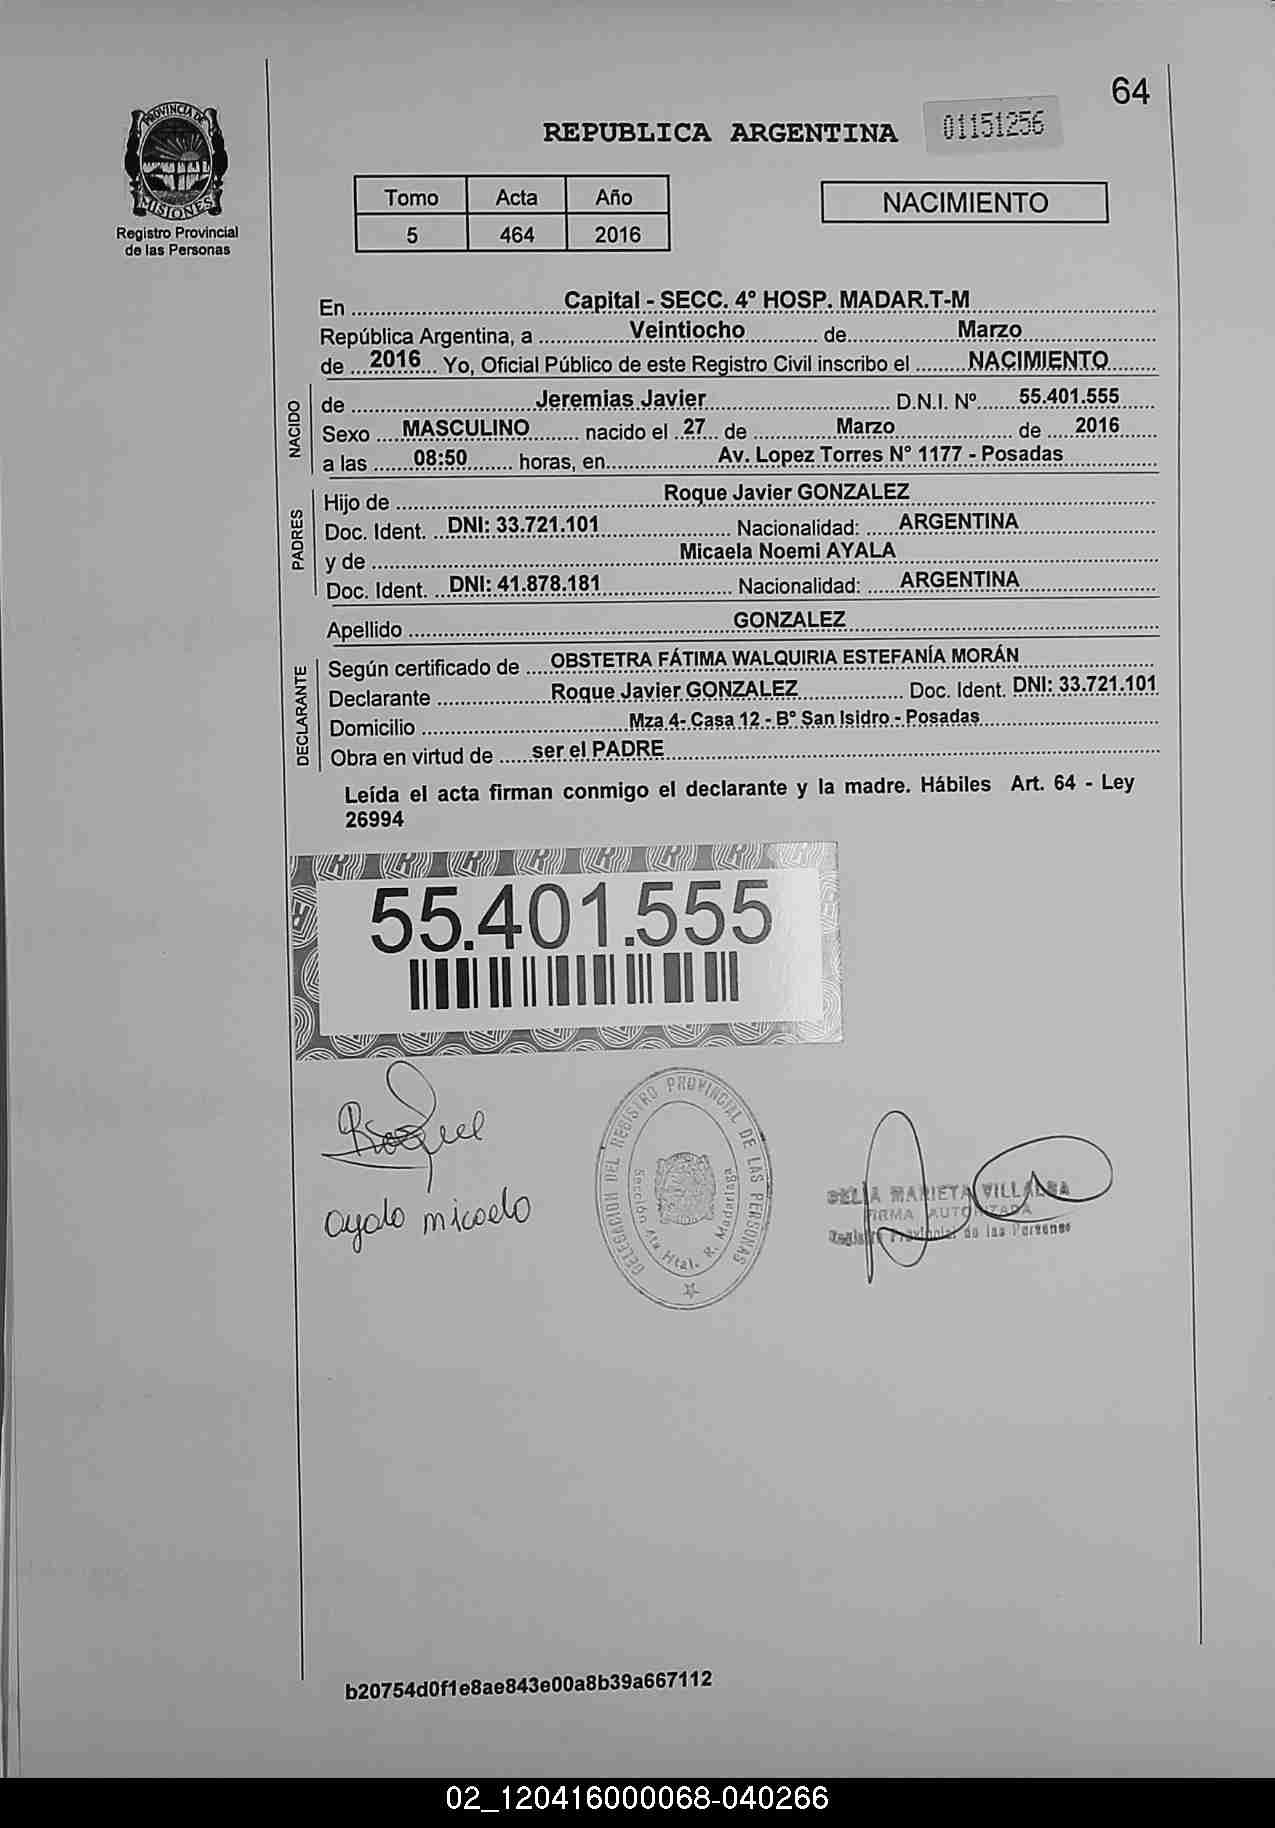 64
PROVINCIA DE
MISIONES
Registro Provincial
de las Personas
REPUBLICA ARGENTINA
01151256
Tomo Acta Año
5 464 2016
NACIMIENTO
En Capital - SECC. 4º HOSP. MADAR.T-M
República Argentina, a Veintiocho de Marzo
de 2016 Yo, Oficial Público de este Registro Civil inscribo el NACIMIENTO
NACIDO
de Jeremias Javier D.N.I. Nº 55.401.555
Sexo MASCULINO nacido el 27 de Marzo de 2016
a las 08:50 horas, en Av. Lopez Torres N° 1177 - Posadas
PADRES
Hijo de Roque Javier GONZALEZ
Doc. Ident. DNI: 33.721.101 Nacionalidad: ARGENTINA
y de Micaela Noemi AYALA
Doc. Ident. DNI: 41.878.181 Nacionalidad: ARGENTINA
Apellido GONZALEZ
DECLARANTE
Según certificado de OBSTETRA FÁTIMA WALQUIRIA ESTEFANÍA MORÁN
Declarante Roque Javier GONZALEZ Doc. Ident. DNI: 33.721.101
Domicilio Mza 4- Casa 12 - B° San Isidro - Posadas
Obra en virtud de ser el PADRE
Leída el acta firman conmigo el declarante y la madre. Hábiles Art. 64 - Ley
26994
55.401.555
Roque
ayala micaela
DELEGACION DEL REGISTRO PROVINCIAL DE LAS PERSONAS
Sección 4ta Htal. R. Madariaga
MARIETA VILLALBA
FIRMA AUTORIZADA
Registro Provincial de las Personas
b20754d0f1e8ae843e00a8b39a667112
02_120416000068-040266